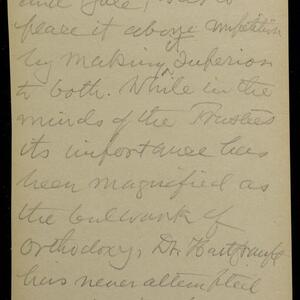 and Yale, but to
place it above competition
by making it superior
to both. While in the
minds of the Trustees
its importance has
been magnified as
the bulwark of
orthodoxy, Dr. Hartranft
has never attempted